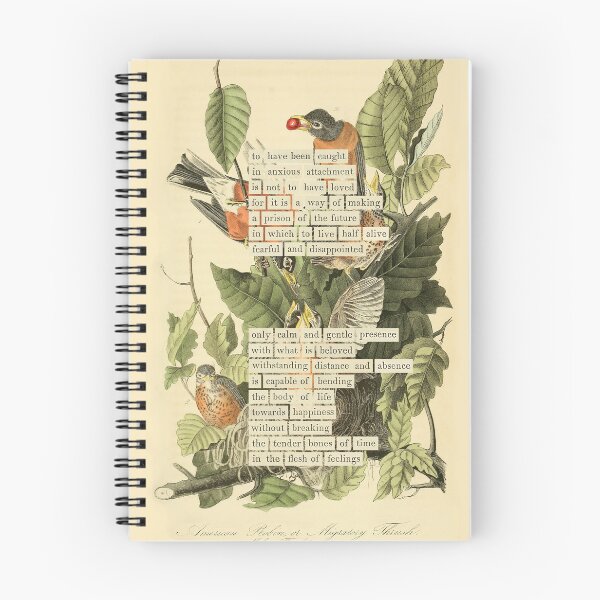 to have been caught
in anxious attachment
is not to have loved
for it is a way of making
a prison of the future
in which to live half alive
fearful and disappointed
only calm and gentle presence
with what is beloved
withstanding distance and absence
is capable of bending
the body of life
towards happiness
without breaking
the tender bones of time
in the flesh of feelings
American Robin, or Migratory Thrush.